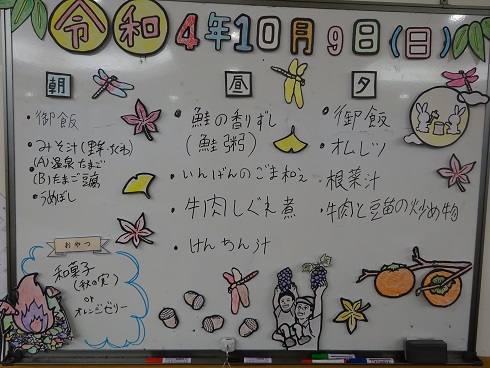 令和4年10月9日(日)
朝
・御飯
・みそ汁(野菜・ふわ)
(A)温泉たまご
(B)たまご豆腐
・うめぼし
おやつ
和菓子
(秋の実)
or
オレンジゼリー
昼
・鮭の香りずし
(鮭粥)
・いんげんのごま和え
・牛肉しぐれ煮
・けんちん汁
夕
・御飯
・オムレツ
・根菜汁
・牛肉と豆苗の炒め物